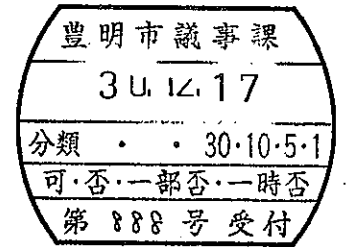 豊明市議事課
30.12.17
分類 ・ ・ 30・10・5・1
可・否・一部否・一時否
第 888 号 受付